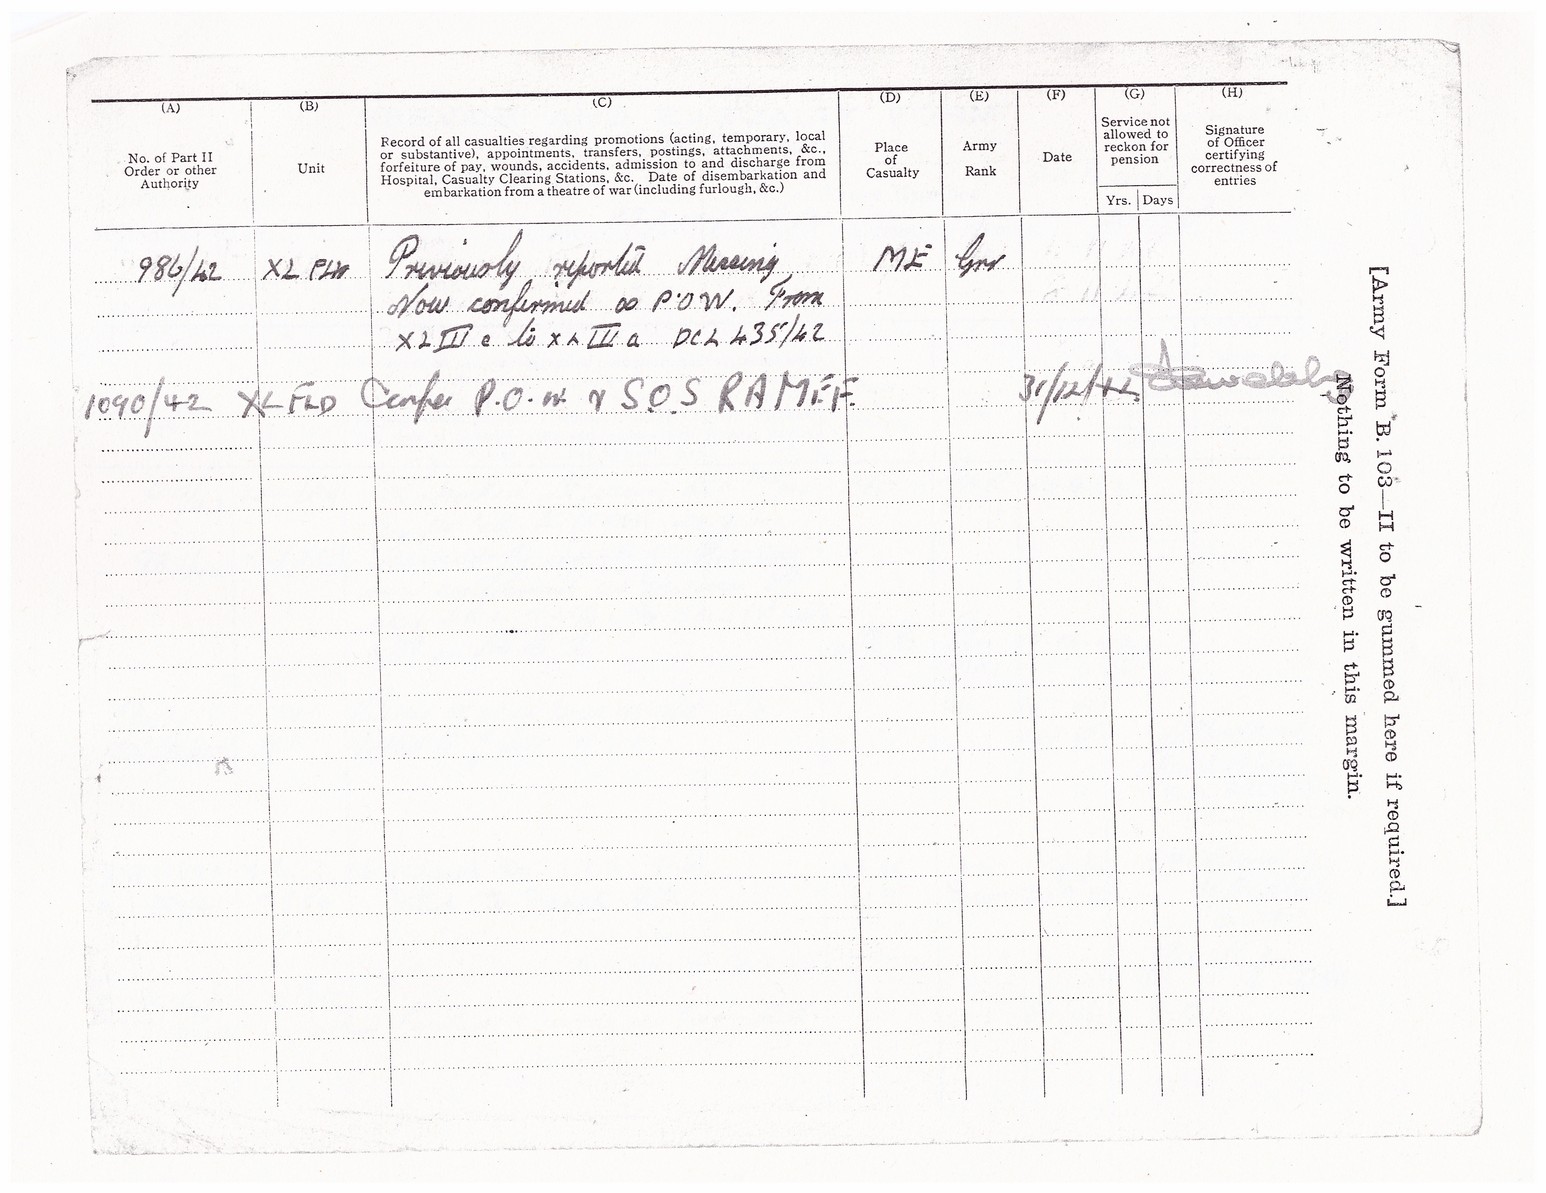 (A) (B) (C) (D) (E) (F) (G) (H)
No. of Part II
Order or other
Authority
Unit
Record of all casualties regarding promotions (acting, temporary, local
or substantive), appointments, transfers, postings, attachments, &c.,
forfeiture of pay, wounds, accidents, admission to and discharge from
Hospital, Casualty Clearing Stations, &c. Date of disembarkation and
embarkation from a theatre of war (including furlough, &c.)
Place
of
Casualty
Army
Rank
Date
Service not
allowed to
reckon for
pension
Yrs. Days
Signature
of Officer
certifying
correctness of
entries
986/42 XL FLD Previously reported Missing ME Gnr
Now confirmed as P.O.W. From
XL III c to XL III a DCL 435/42
1090/42 XL FLD P.O.W. & S.O.S RAMEF. 31/12/42
[Army Form B. 103—II to be gummed here if required.]
Nothing to be written in this margin.